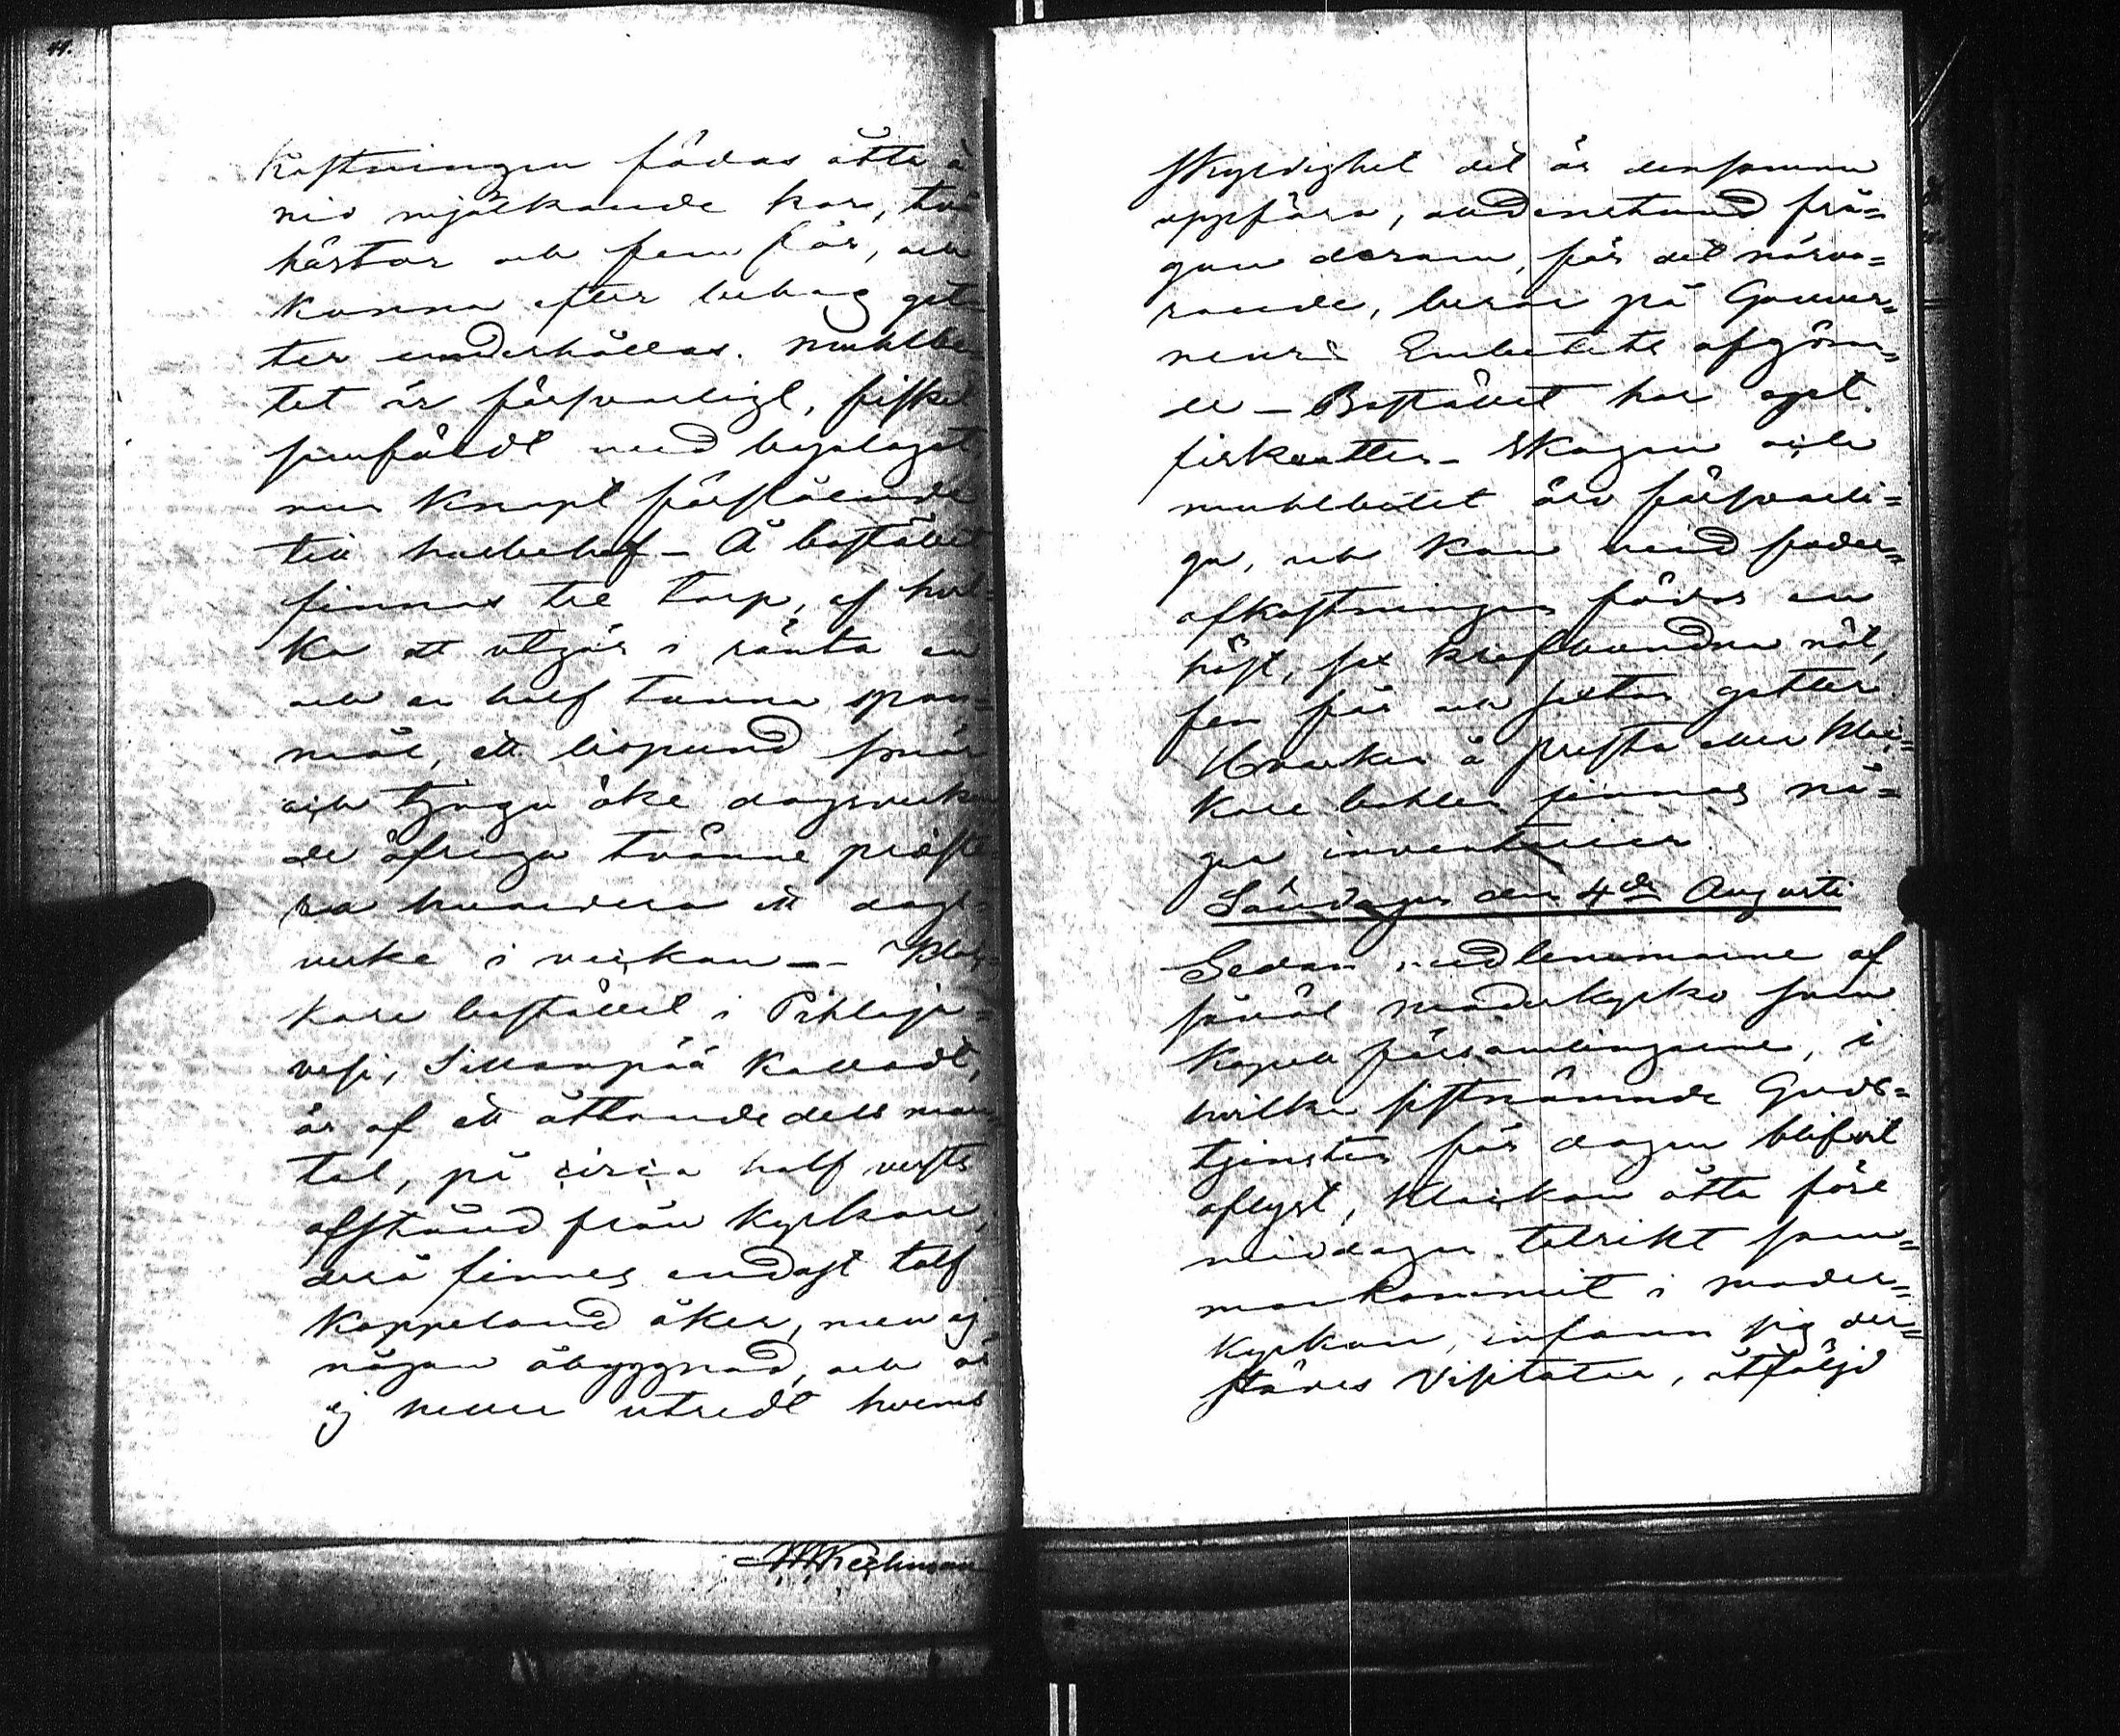 44.
kastningen födas åtta à
nio mjölkande kor, två
hästar och fem får, och
kunna efter behag get-
ter underhållas. Muhlbe-
tet är försvarligt, fisket
samfäldt med byalaget,
men knapt förslående
till husbehof – Å bostället
finnas tre torp, af hvil=
ka ett utgör i ränta en
och en half tunna span=
mål, ett lispund smör
och tjugu öke dagsverken
de öfriga tvänne præste-
ra hvardera ett dags-
verke i veckan – – Kloc-
kare bostället i Pihlaja=
vesi, Sillanpää kalladt,
är af ett åttondedels man-
tal, på circa half versts
afstånd från kyrkan;
derå finnes endast tolf
kappeland åker, men ej
någon åbyggnad, och är
ej heller utredt hvems
skyldighet det är densamma
uppföra, alldenstund frå=
gan derom, för det närva=
rande, beror på Gouver=
neurs Embetets afgöran=
de – Bostället har eget
fiskvatten – Skogen och
muhlbetet äro försvarli=
ga, och kan med foder=
afkastningen födas en
häst, sex klafbundna nöt,
fem får och sexton getter.
Hvarken å prest eller kloc=
kare bohlen finnas nå=
gra inventarier.
Söndagen den 4de Augusti
Sedan medlemmarne af
såväl moderkyrko som
kapell församlingarne, i
hvilka sistnämnde Guds=
tjensten för dagen blifvit
aflyst, klockan åtta före
middagen talrikt sam=
mankommit i moder=
kyrkan, infann sig der=
städes Visitator, åtföljd